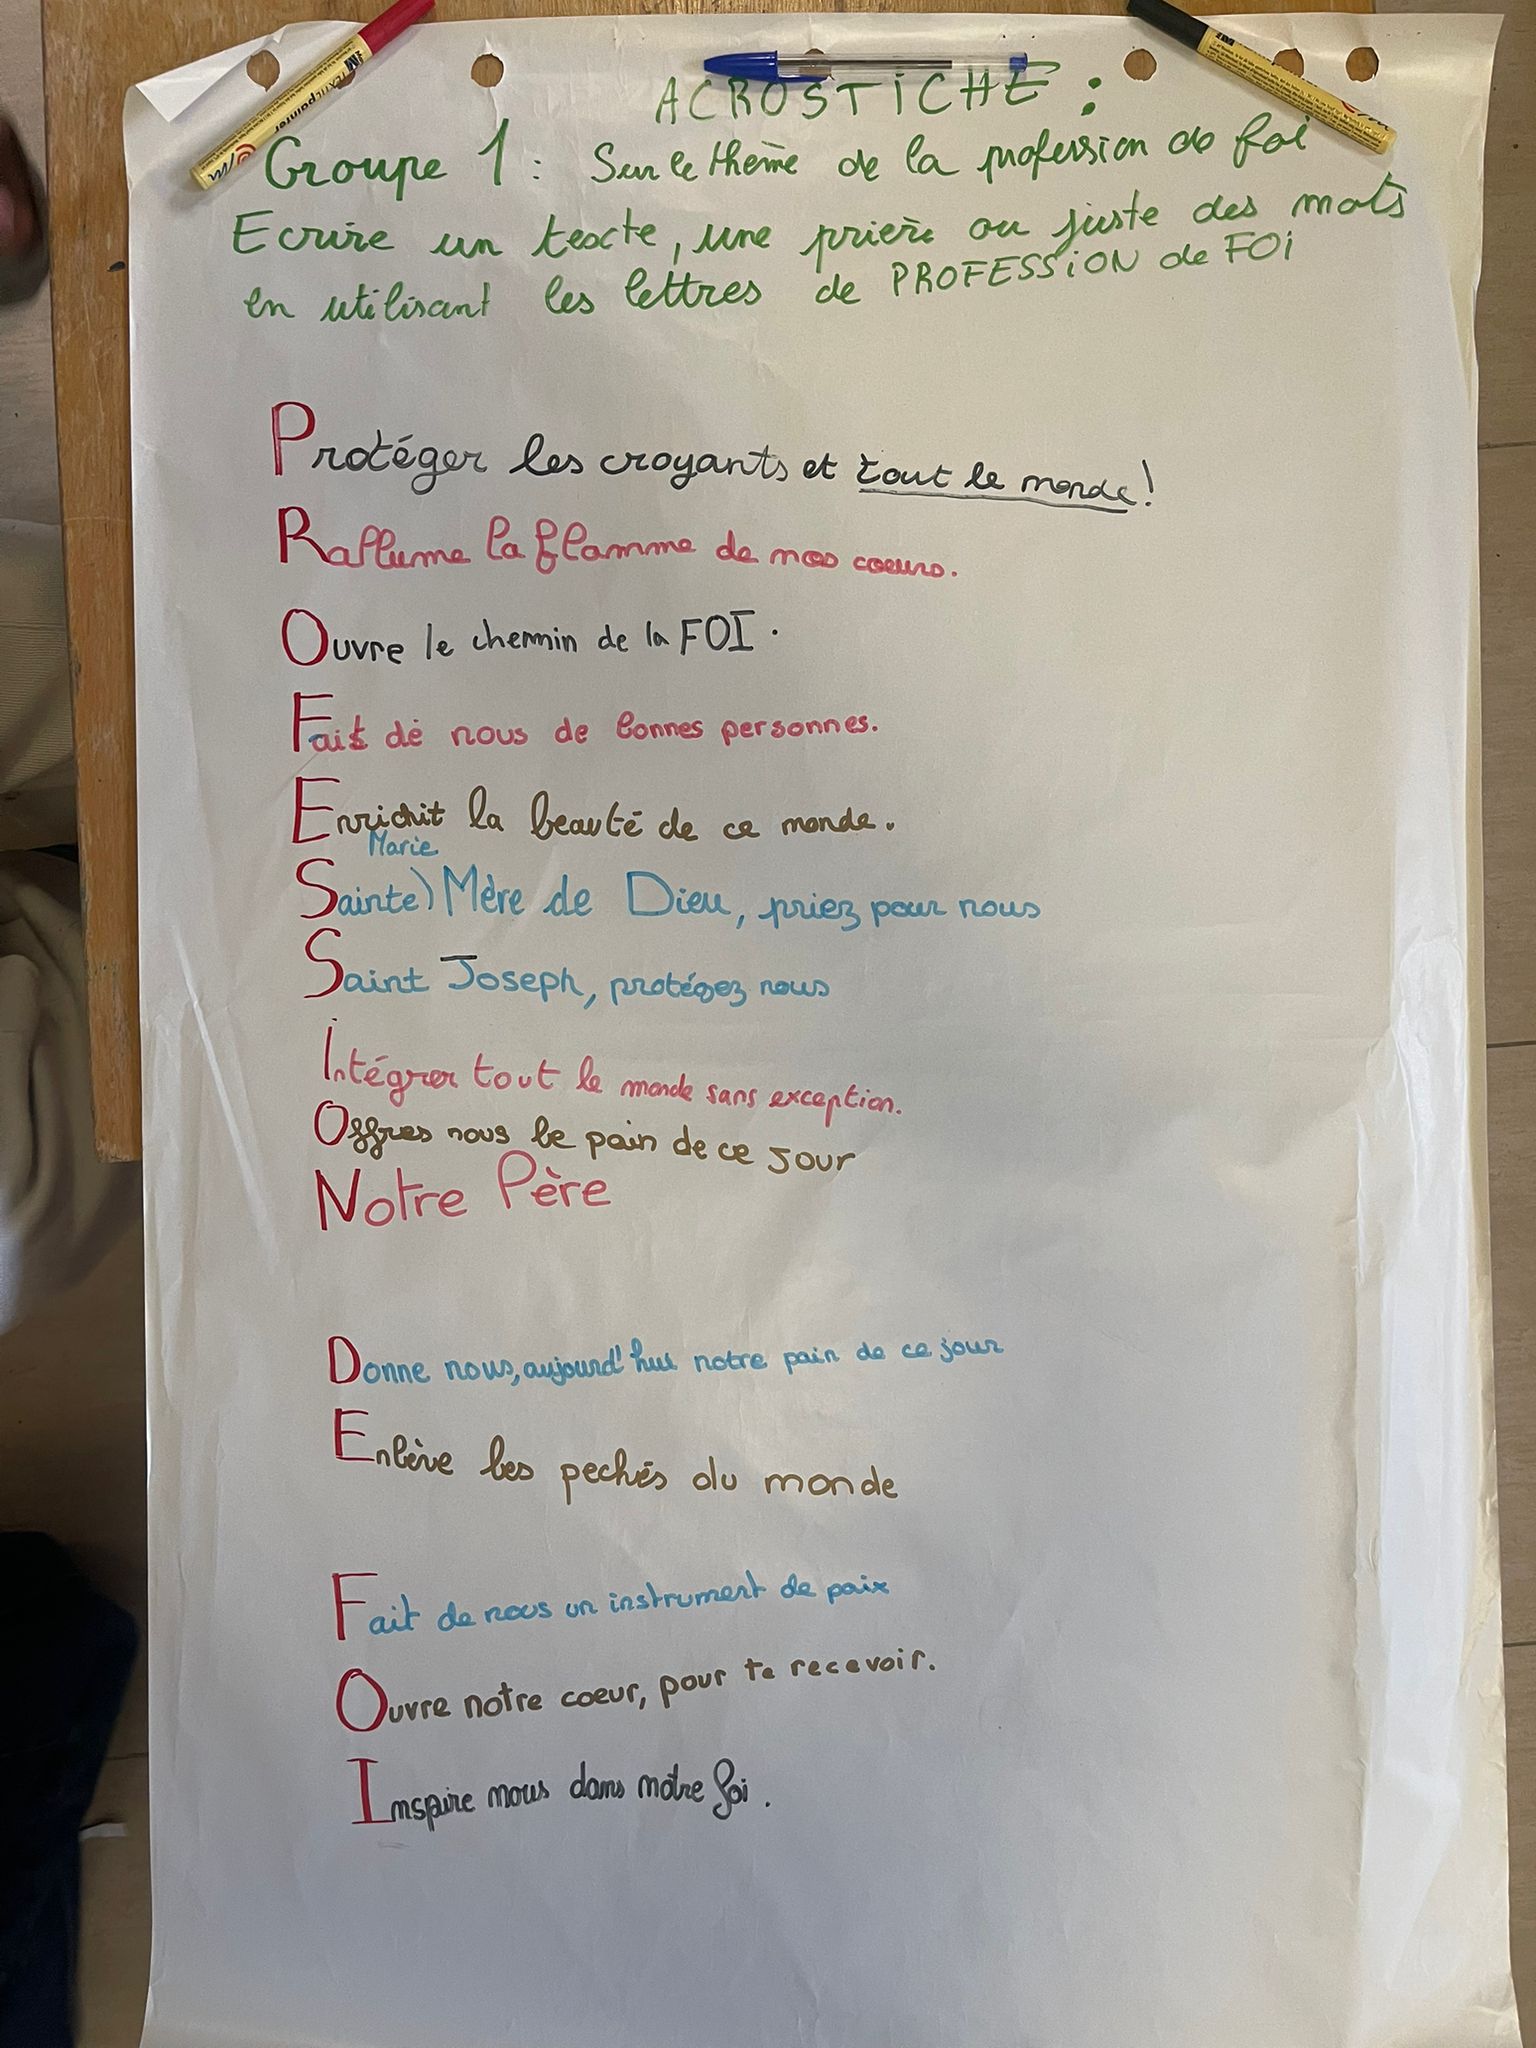 ACROSTICHE :
Groupe 1 : Sur le thème de la profession de foi
Ecrire un texte, une prière ou juste des mots
en utilisant les lettres de PROFESSION de FOi
Protéger les croyants et tout le monde !
Rallume la flamme de nos coeurs.
Ouvre le chemin de la FOI.
Fait de nous de bonnes personnes.
Enrichit la beauté de ce monde.
Marie
Sainte) Mère de Dieu, priez pour nous
Saint Joseph, protégez nous
Intégrer tout le monde sans exception.
Offres nous le pain de ce jour
Notre Père
Donne nous, aujourd'hui notre pain de ce jour
Enlève les pechés du monde
Fait de nous un instrument de paix
Ouvre notre coeur, pour te recevoir.
Inspire nous dans notre foi.